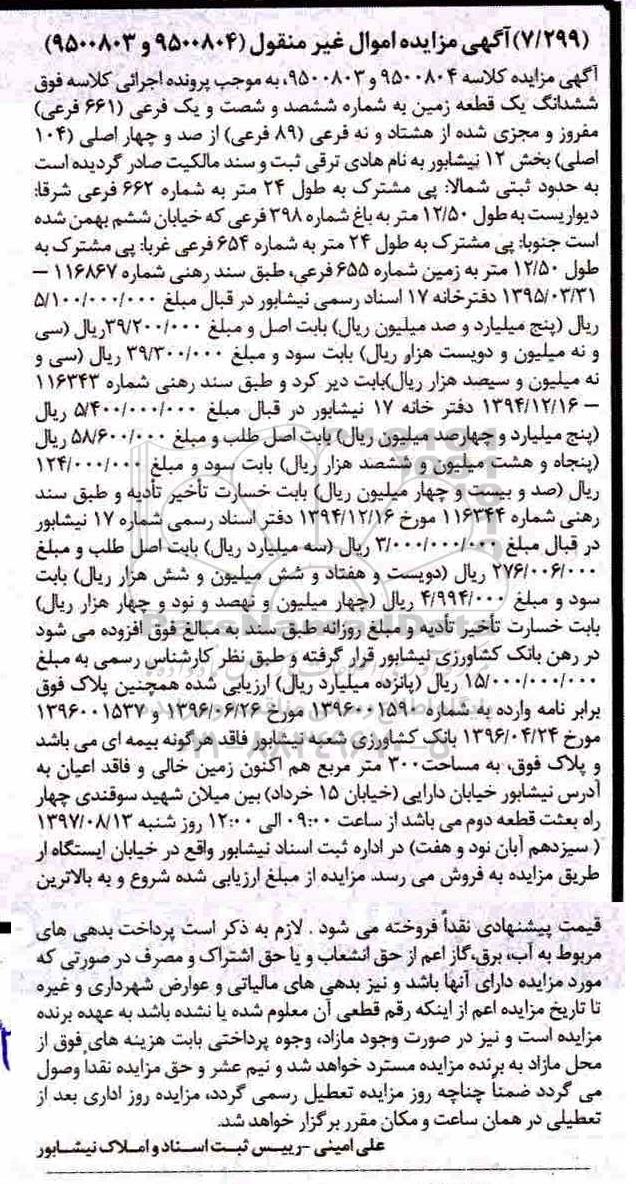 (۷/۲۹۹) آگهی مزایده اموال غیر منقول (۹۵۰۰۸۰۴ و ۹۵۰۰۸۰۳)
آگهی مزایده کلاسه ۹۵۰۰۸۰۴ و ۹۵۰۰۸۰۳، به موجب پرونده اجرائی کلاسه فوق
ششدانگ یک قطعه زمین به شماره ششصد و شصت و یک فرعی (۶۶۱ فرعی)
مفروز و مجزی شده از هشتاد و نه فرعی (۸۹ فرعی) از صد و چهار اصلی (۱۰۴
اصلی) بخش ۱۲ نیشابور به نام هادی ترقی ثبت و سند مالکیت صادر گردیده است
به حدود ثبتی شمالا: پی مشترک به طول ۲۴ متر به شماره ۶۶۲ فرعی شرقا:
دیواریست به طول ۱۲/۵۰ متر به باغ شماره ۳۹۸ فرعی که خیابان ششم بهمن شده
است جنوبا: پی مشترک به طول ۲۴ متر به شماره ۶۵۴ فرعی غربا: پی مشترک به
طول ۱۲/۵۰ متر به زمین شماره ۶۵۵ فرعی، طبق سند رهنی شماره ۱۱۶۸۶۷ –
۱۳۹۵/۰۳/۳۱ دفترخانه ۱۷ اسناد رسمی نیشابور در قبال مبلغ ۵/۱۰۰/۰۰۰/۰۰۰
ریال (پنج میلیارد و صد میلیون ریال) بابت اصل و مبلغ ۳۹/۲۰۰/۰۰۰ریال (سی
و نه میلیون و دویست هزار ریال) بابت سود و مبلغ ۳۹/۳۰۰/۰۰۰ ریال (سی و
نه میلیون و سیصد هزار ریال)بابت دیر کرد و طبق سند رهنی شماره ۱۱۶۳۴۳
– ۱۳۹۴/۱۲/۱۶ دفتر خانه ۱۷ نیشابور در قبال مبلغ ۵/۴۰۰/۰۰۰/۰۰۰ ریال
(پنج میلیارد و چهارصد میلیون ریال) بابت اصل طلب و مبلغ ۵۸/۶۰۰/۰۰۰ ریال
(پنجاه و هشت میلیون و ششصد هزار ریال) بابت سود و مبلغ ۱۲۴/۰۰۰/۰۰۰
ریال (صد و بیست و چهار میلیون ریال) بابت خسارت تأخیر تأدیه و طبق سند
رهنی شماره ۱۱۶۳۴۴ مورخ ۱۳۹۴/۱۲/۱۶ دفتر اسناد رسمی شماره ۱۷ نیشابور
در قبال مبلغ ۳/۰۰۰/۰۰۰/۰۰۰ ریال (سه میلیارد ریال) بابت اصل طلب و مبلغ
۲۷۶/۰۰۶/۰۰۰ ریال (دویست و هفتاد و شش میلیون و شش هزار ریال) بابت
سود و مبلغ ۴/۹۹۴/۰۰۰ ریال (چهار میلیون و نهصد و نود و چهار هزار ریال)
بابت خسارت تأخیر تأدیه و مبلغ روزانه طبق سند به مبالغ فوق افزوده می شود
در رهن بانک کشاورزی نیشابور قرار گرفته و طبق نظر کارشناس رسمی به مبلغ
۱۵/۰۰۰/۰۰۰/۰۰۰ ریال (پانزده میلیارد ریال) ارزیابی شده همچنین پلاک فوق
برابر نامه وارده به شماره ۱۳۹۶۰۰۱۵۹۰ مورخ ۱۳۹۶/۰۶/۲۶ و ۱۳۹۶۰۰۱۵۳۷
مورخ ۱۳۹۶/۰۴/۲۴ بانک کشاورزی شعبه نیشابور فاقد هرگونه بیمه ای می باشد
و پلاک فوق، به مساحت۳۰۰ متر مربع هم اکنون زمین خالی و فاقد اعیان به
آدرس نیشابور خیابان دارایی (خیابان ۱۵ خرداد) بین میلان شهید سوقندی چهار
راه بعثت قطعه دوم می باشد از ساعت ۰۹:۰۰ الی ۱۲:۰۰ روز شنبه ۱۳۹۷/۰۸/۱۳
( سیزدهم آبان نود و هفت) در اداره ثبت اسناد نیشابور واقع در خیابان ایستگاه از
طریق مزایده به فروش می رسد. مزایده از مبلغ ارزیابی شده شروع و به بالاترین
قیمت پیشنهادی نقداً فروخته می شود . لازم به ذکر است پرداخت بدهی های
مربوط به آب، برق،گاز اعم از حق انشعاب و یا حق اشتراک و مصرف در صورتی که
مورد مزایده دارای آنها باشد و نیز بدهی های مالیاتی و عوارض شهرداری و غیره
تا تاریخ مزایده اعم از اینکه رقم قطعی آن معلوم شده یا نشده باشد به عهده برنده
مزایده است و نیز در صورت وجود مازاد، وجوه پرداختی بابت هزینه های فوق از
محل مازاد به برنده مزایده مسترد خواهد شد و نیم عشر و حق مزایده نقداً وصول
می گردد ضمناً چناچه روز مزایده تعطیل رسمی گردد، مزایده روز اداری بعد از
تعطیلی در همان ساعت و مکان مقرر برگزار خواهد شد.
علی امینی -رییس ثبت اسناد و املاک نیشابور
ParsNamadData